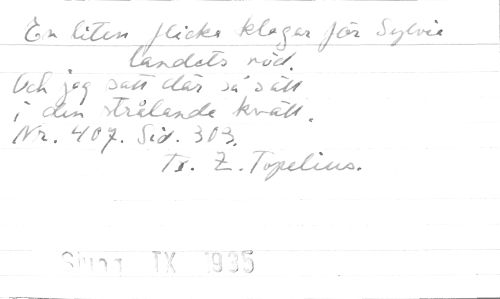 En liten flicka klagar för Sylvia
landets nöd.
Och jag satt där så sött
i den strålande kväll.
Nr. 407. Sid. 303.
Tr. Z. Topelius.
IX 1935